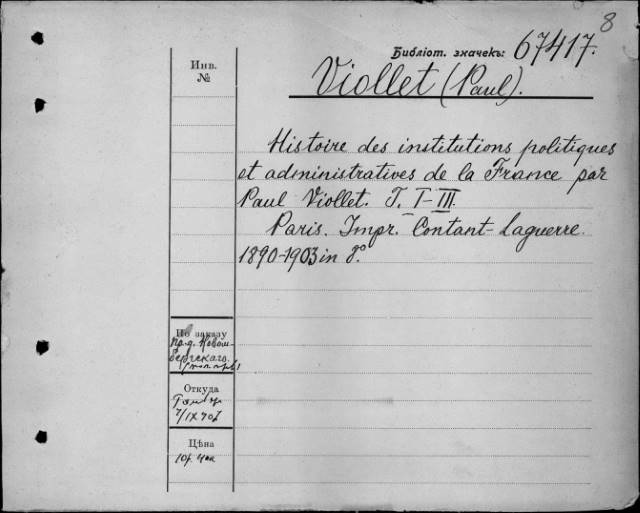 8
Библіот. значекъ: 67417.
Инв.
№
Viollet (Paul).
Histoire des institutions politiques
et administratives de la France par
Paul Viollet. T. I-III.
Paris. Impr. Contant-Laguerre.
1890-1903 in 8°.
По заказу
пр-д. Новом-
бергскаго
Откуда
7/IX 907
Цѣна
10р. 40к